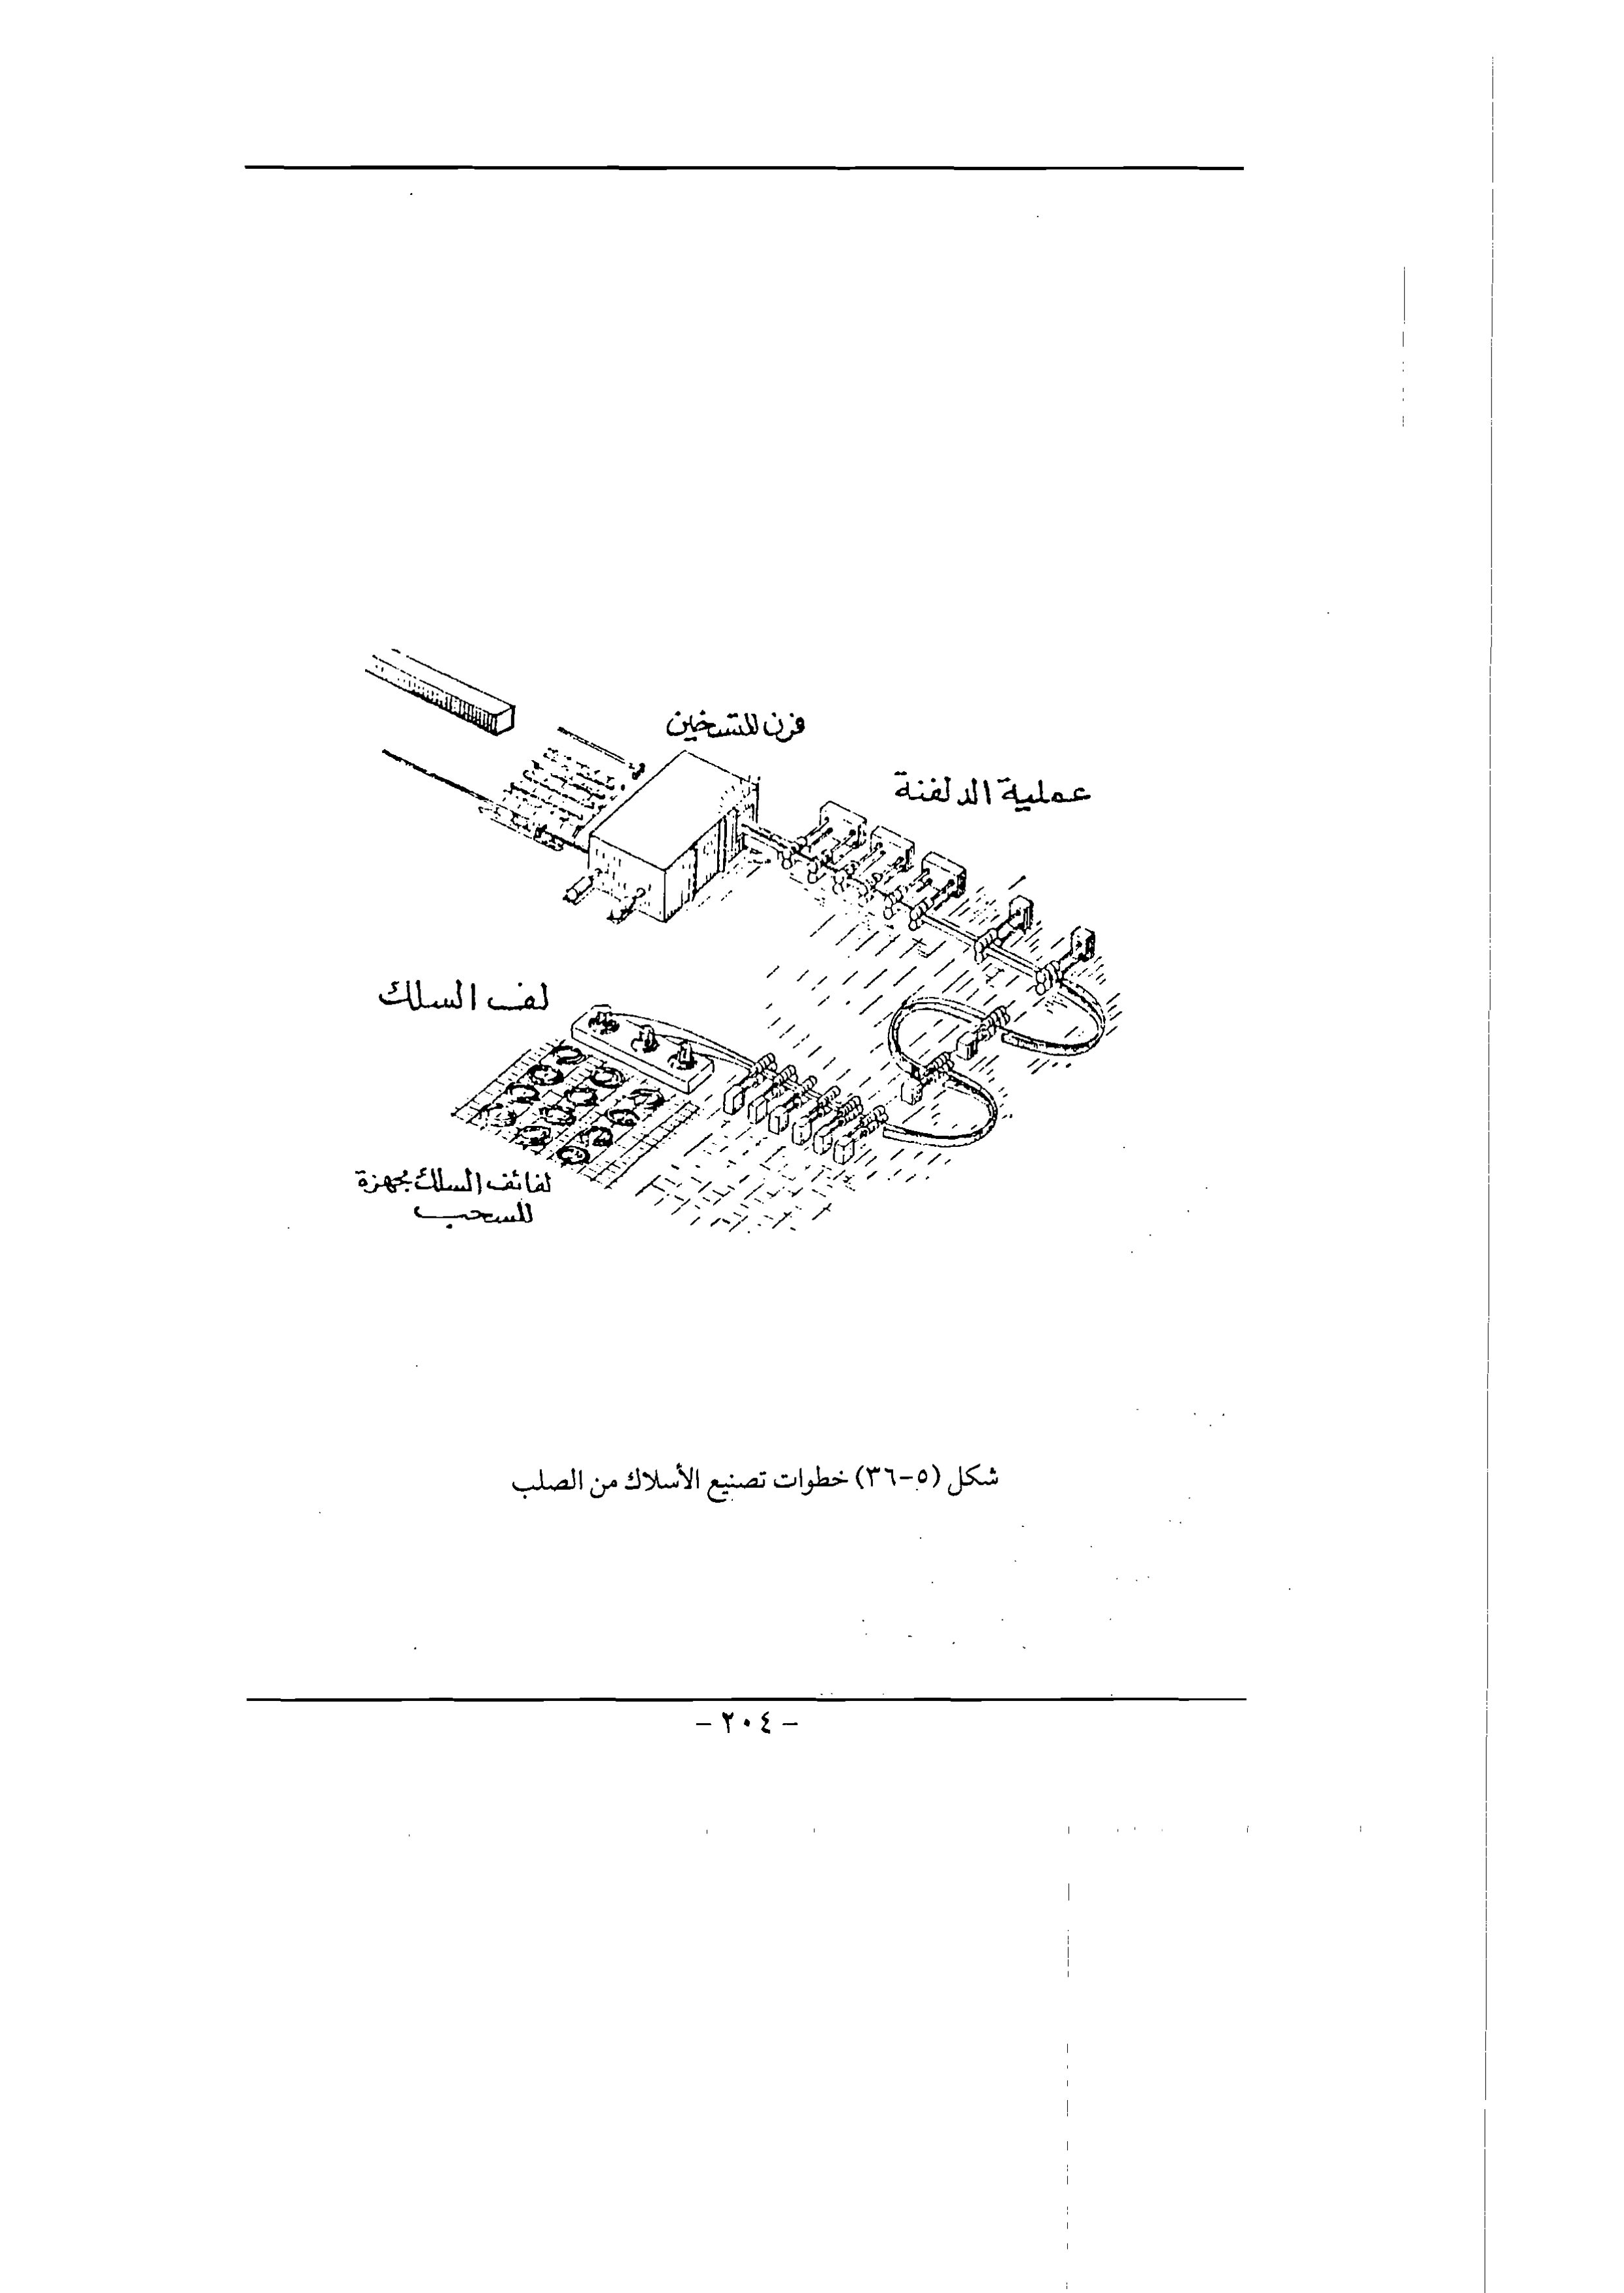 فرن للتسخين
عملية الدلفنة
لف السلك
لفائف السلك مجهزة
للسحب
شكل (٥-٣٦) خطوات تصنيع الأسلاك من الصلب
- ٢٠٤ -